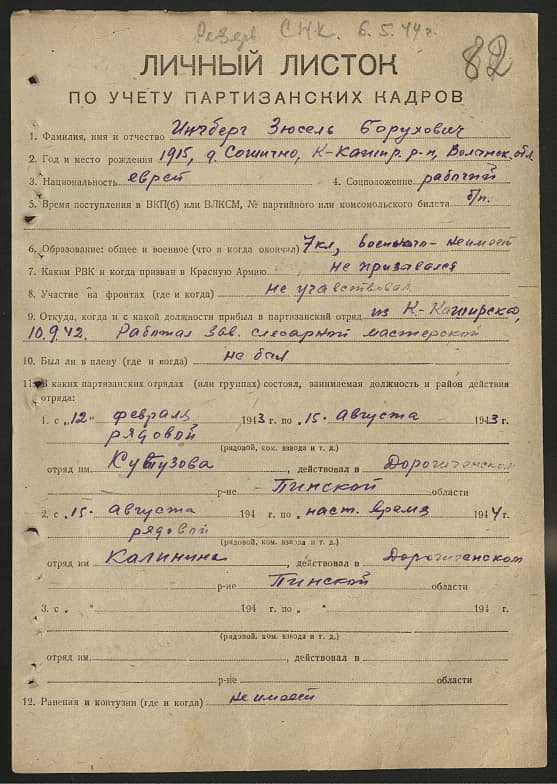 Резерв СНК. 6.5.44 г.
82
ЛИЧНЫЙ ЛИСТОК
ПО УЧЕТУ ПАРТИЗАНСКИХ КАДРОВ
1. Фамилия, имя и отчество Инчберг Зюсель Борухович
2. Год и место рождения 1915, д. Сошично, К-Кашир. р-н, Волынск. обл
3. Национальность еврей 4. Соцположение рабочий
5. Время поступления в ВКП(б) или ВЛКСМ, № партийного или комсомольского билета б/п.
6. Образование: общее и военное (что и когда окончил) 7 кл, военного - не имеет
7. Каким РВК и когда призван в Красную Армию не призавался
8. Участие на фронтах (где и когда) не учавствовал
9. Откуда, когда и с какой должности прибыл в партизанский отряд из К-Каширска,
10.9.42. Работал зав. слесарной мастерской
10. Был ли в плену (где и когда) не был
11. В каких партизанских отрядах (или группах) состоял, занимаемая должность и район действия
отряда:
1. с „12" февраля 1943 г. по „15" августа 1943 г.
рядовой
(рядовой, ком. взвода и т. д.)
отряд им Кутузова, действовал в Дорогиченском
р-не Пинской области
2. с „15" августа 194 г. по „наст. время 1944 г.
рядовой
(рядовой, ком. взвода и т. д.)
отряд им Калинина, действовал в Дорогиченском
р-не Пинской области
3. с „ " 194 г. по „ " 194 г.
(рядовой, ком. взвода и т. д.)
отряд им. , действовал в
р-не области
12. Ранения и контузии (где и когда) не имеет